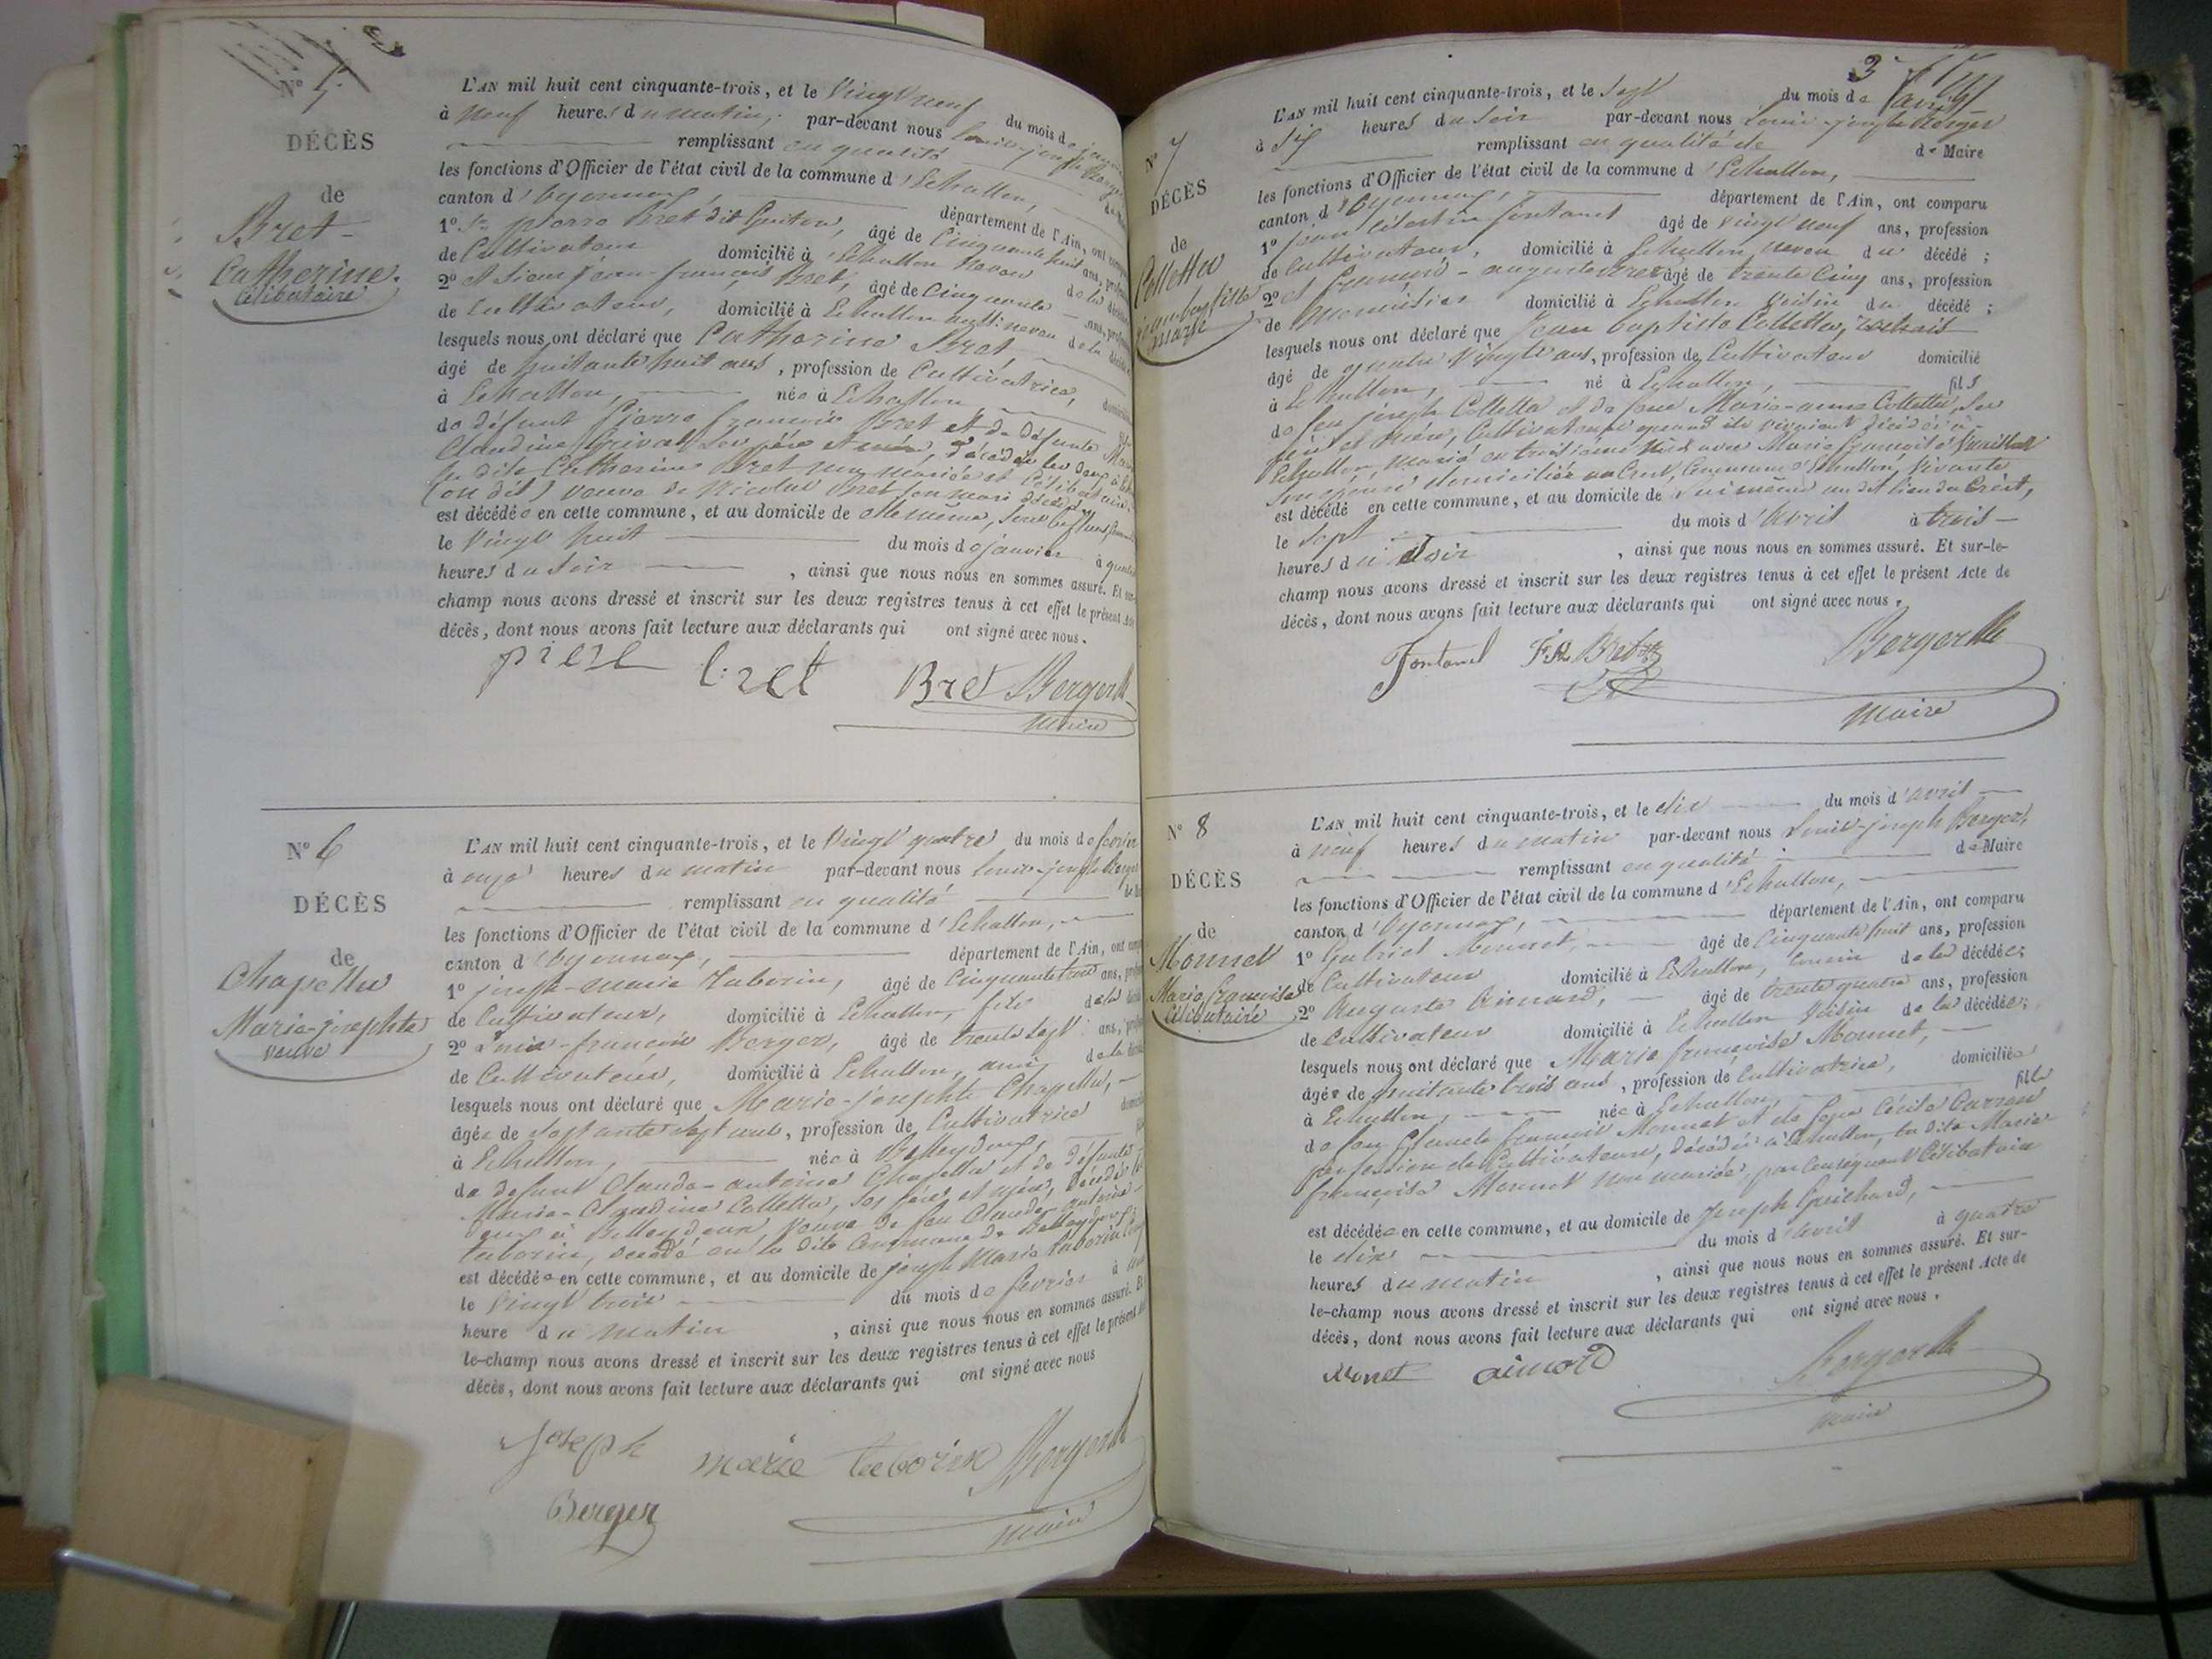 N° 5
DÉCÈS
de
Bret
Catherine
Célibataire
L'AN mil huit cent cinquante-trois, et le Vingt neuf du mois de
à neuf heures du matin, par-devant nous louis-joseph
remplissant en qualité
les fonctions d'Officier de l'état civil de la commune d'Echallon,
canton d'Oyonnax, département de l'Ain, ont
1° Sr pierre Bret dit Guiton, âgé de Cinquante huit ans,
de Cultivateur domicilié à Echallon neveu de la
2° et Sieur jean-françois Bret, âgé de Cinquante ans,
de Cultivateur, domicilié à Echallon aussi neveu de la
lesquels nous ont déclaré que Catherine Bret
âgé de huitante huit ans, profession de Cultivatrice,
à Echallon, née à Echallon
de défunt Pierre françois Bret et de Défunte
Claudine Grivat ses père et mère, décédés les deux à
la dite Catherine Bret non mariée et Célibataire
(on dit) veuve de Nicolas Bret son mari décédé
est décédée en cette commune, et au domicile de elle même,
le Vingt huit du mois de janvier à
heures du Soir , ainsi que nous nous en sommes assuré. Et
champ nous avons dressé et inscrit sur les deux registres tenus à cet effet le présent
décès, dont nous avons fait lecture aux déclarants qui ont signé avec nous.
Bret Berger
Maire
N° 6
DÉCÈS
de
Chapellu
Marie-josephte
veuve
L'AN mil huit cent cinquante-trois, et le Vingt quatre du mois de fevrier
à onze heures du matin par-devant nous louis-joseph Berger
remplissant en qualité
les fonctions d'Officier de l'état civil de la commune d'Echallon,
canton d'Oyonnax, département de l'Ain, ont
1° joseph-marie Taborin, âgé de Cinquante trois ans,
de Cultivateur, domicilié à Echallon, fils de la
2° Louis-françois Berger, âgé de trente Sept ans,
de Cultivateur, domicilié à Echallon, ami de la
lesquels nous ont déclaré que Marie-josephte Chapellu,
âgée de Septante Sept ans, profession de Cultivatrice
à Echallon, née à Belleydoux,
de defunt Claude-antoine Chapellu et de défunte
Marie-Claudine Collettaz, ses père et mère, décédés
deux à Belleydoux, veuve de feu Claude-antoine
taborin, décédé en la dite Commune de Belleydoux
est décédée en cette commune, et au domicile de joseph Marie taborin
le Vingt trois du mois de fevrier à
heure du matin , ainsi que nous nous en sommes assuré. Et
le-champ nous avons dressé et inscrit sur les deux registres tenus à cet effet le présent
décès, dont nous avons fait lecture aux déclarants qui ont signé avec nous
Joseph marie taborin Berger
Berger Maire
3
N° 7
DÉCÈS
de
Colletta
marié
L'AN mil huit cent cinquante-trois, et le Sept du mois de avril
à Six heures du Soir par-devant nous Louis-joseph Berger
remplissant en qualité de de Maire
les fonctions d'Officier de l'état civil de la commune d'Echallon,
canton d'Oyonnax, département de l'Ain, ont comparu
1° jean Célestin fontanet âgé de vingt neuf ans, profession
de Cultivateur, domicilié à Echallon neveu du décédé ;
2° et françois-auguste Bret âgé de trente Cinq ans, profession
de Menuisier domicilié à Echallon Voisin du décédé ;
lesquels nous ont déclaré que Jean baptiste Colletta,
âgé de quatre Vingts ans, profession de Cultivateur domicilié
à Echallon, né à Echallon, fils
de feu joseph Colletta et de feue Marie-anne Colletta, ses
père et mère, Cultivateurs quand ils vivaient décédés à
Echallon, Marié en troisième avec Marie françoise
Son épouse domiciliée au Cret, Commune d'Echallon, Vivante
est décédé en cette commune, et au domicile de lui même au dit lieu du Crèt,
le Sept du mois d'avril à trois
heures du Soir , ainsi que nous nous en sommes assuré. Et sur-le-
champ nous avons dressé et inscrit sur les deux registres tenus à cet effet le présent Acte de
décès, dont nous avons fait lecture aux déclarants qui ont signé avec nous.
Fontanel F.A. Bret Berger
Maire
N° 8
DÉCÈS
de
Monnet
Marie françoise
Célibataire
L'AN mil huit cent cinquante-trois, et le dix du mois d'avril
à neuf heures du matin par-devant nous Louis-joseph Berger,
remplissant en qualité de Maire
les fonctions d'Officier de l'état civil de la commune d'Echallon,
canton d'Oyonnax, département de l'Ain, ont comparu
1° Gabriel Monnet, âgé de Cinquante huit ans, profession
de Cultivateur domicilié à Echallon, Cousin de la décédée;
2° Auguste Aimard, âgé de trente quatre ans, profession
de Cultivateur domicilié à Echallon Voisin de la décédée;
lesquels nous ont déclaré que Marie françoise Monnet,
âgée de huitante trois ans, profession de Cultivatrice, domiciliée
à Echallon, née à Echallon, fille
de feu Claude françois Monnet et de feue Cécile
profession de Cultivateurs, décédés à Echallon, la dite Marie
françoise Monnet non mariée, par Conséquent Célibataire
est décédée en cette commune, et au domicile de Joseph
le dix du mois d'avril à quatre
heures du matin , ainsi que nous nous en sommes assuré. Et sur-
le-champ nous avons dressé et inscrit sur les deux registres tenus à cet effet le présent Acte de
décès, dont nous avons fait lecture aux déclarants qui ont signé avec nous.
Monet aimard Berger
Maire